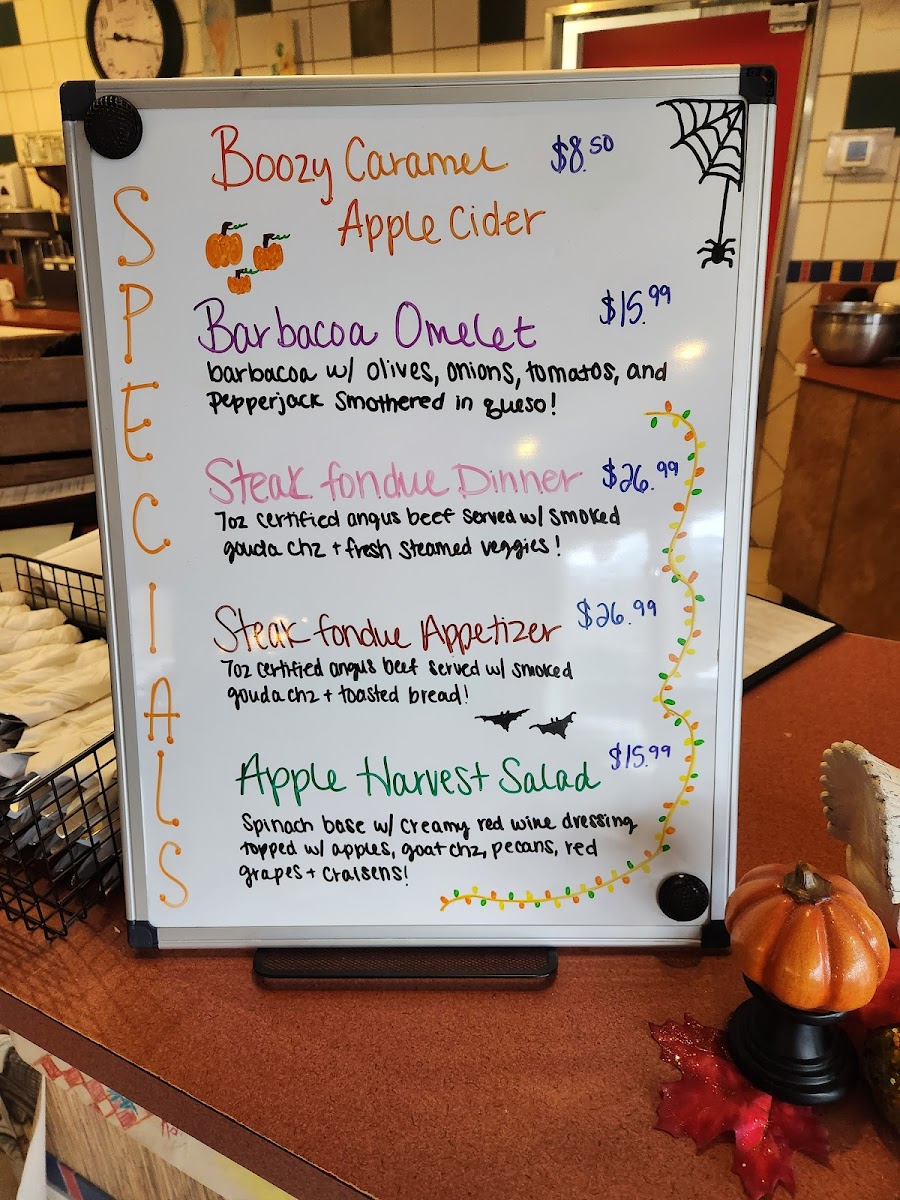 SPECIALS
Boozy Caramel $8.50
Apple Cider
Barbacoa Omelet $15.99
barbacoa w/ olives, onions, tomatos, and
Pepperjack Smothered in queso!
Steak fondue Dinner $26.99
7oz certified angus beef served w/ smoked
gouda chz + fresh steamed veggies!
Steak fondue Appetizer $26.99
7oz certified angus beef served w/ smoked
gouda chz + toasted bread!
Apple Harvest Salad $15.99
Spinach base w/ creamy red wine dressing
topped w/ apples, goat chz, pecans, red
grapes + craisens!